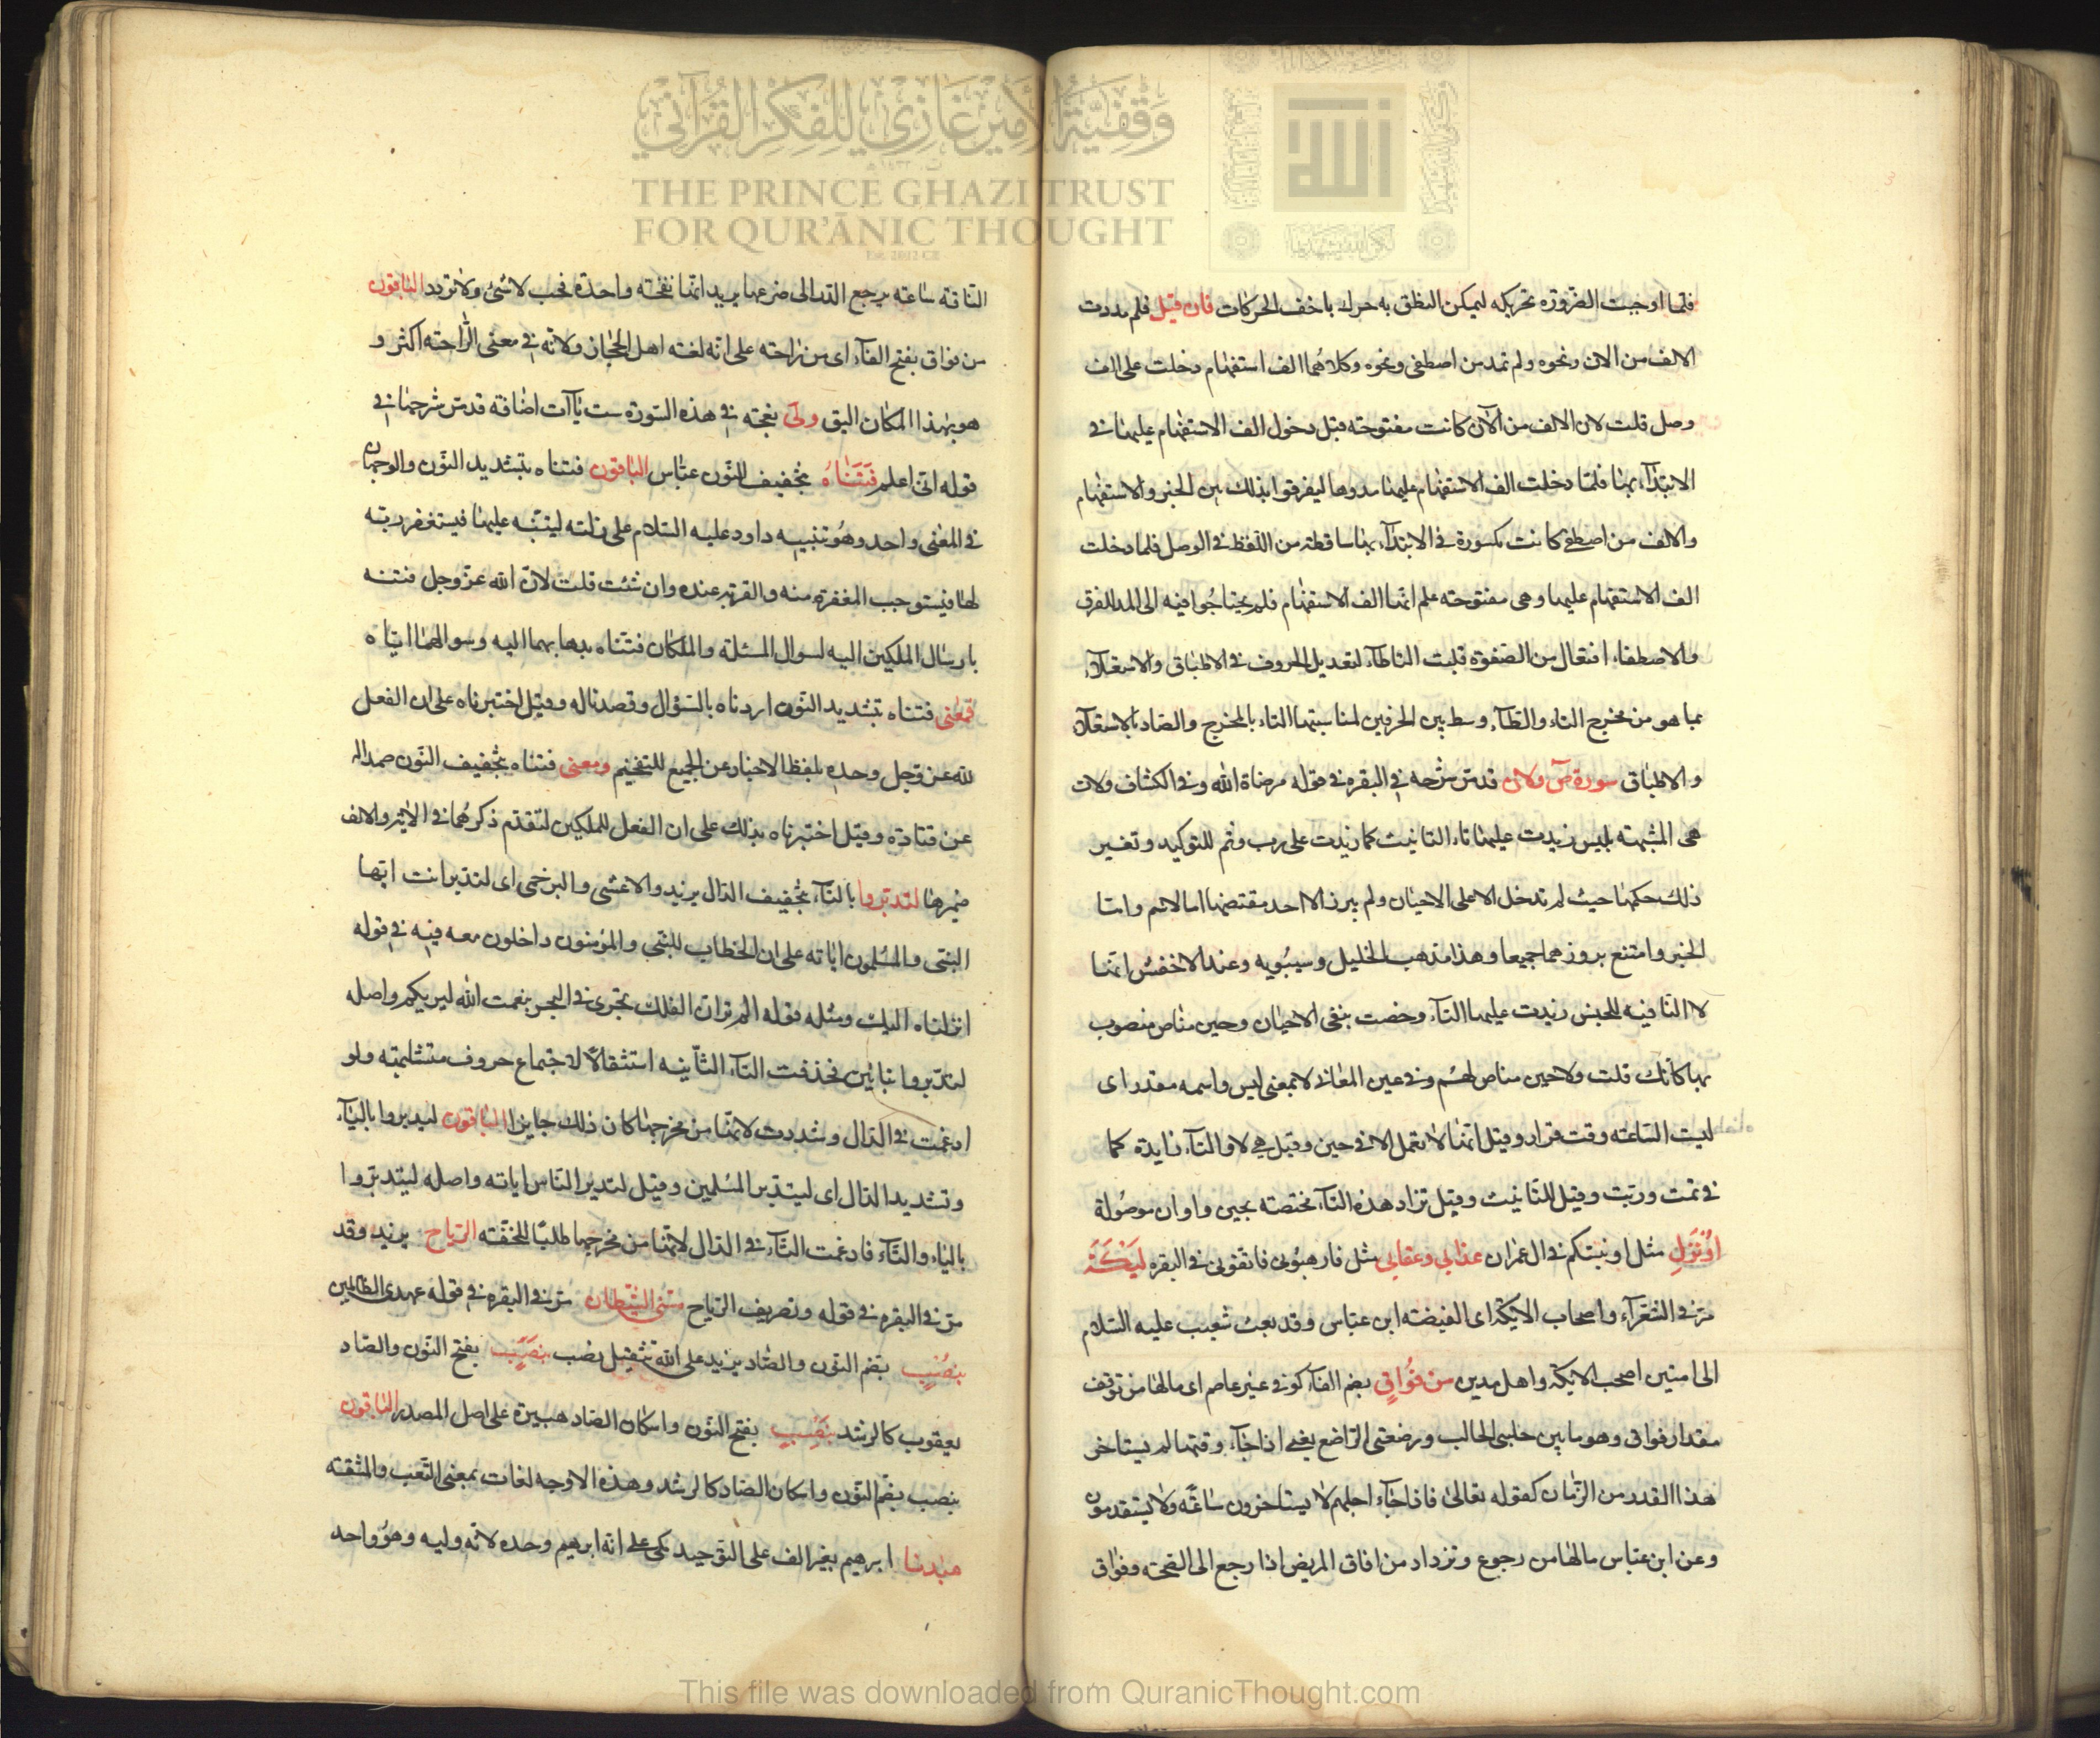 وقفية الأمير غازي للفكر القرآني
THE PRINCE GHAZI TRUST
FOR QUR'ĀNIC THOUGHT
الله
فلما اوجبت الضرورة تحريكه ليمكن النطق به حرك باخف الحركات فان قيل فلم مددت
الالف من الان ونحوه ولم تمد من اصطفى ونحوه وكلاهما الف استفهام دخلت على الف
وصل قلت لان الالف من الآن كانت مفتوحة قبل دخول الف الاستفهام عليها في
الابتدآء بها فلما دخلت الف الاستفهام عليها مدوها ليفرقوا بذلك بين الخبر والاستفهام
والالف من اصطفى كانت مكسورة في الابتدآء بها ساقطة من اللفظ في الوصل فلما دخلت
الف الاستفهام عليها وهي مفتوحة علم انها الف الاستفهام فلم يحتاجوا فيه الى المد للفرق
والاصطفاء افتعال من الصفوة قلبت التا طآء لتعديل الحروف في الاطباق والاستعلآء
بما هو من مخرج التاء والطآء وسط بين الحرفين لمناسبتها التاء بالمخرج والصاد بالاستعلآء
والاطباق سورة ص ولات قد مر شرحه في البقره في قوله مرضاة الله وفي الكشاف ولات
هي المشبهة بليس زيدت عليها تاء التانيث كما زيدت على رب وثم للتوكيد وتغير
ذلك حكمها حيث لم تدخل الا على الاحيان ولم يبرز الا احد مقتضيها اما الاسم واما
الخبر وامتنع بروزهما جميعا وهذا مذهب الخليل وسيبويه وعند الاخفش انها
لا النافيه للجنس زيدت عليها التآء وخصت بنفي الاحيان وحين مناص منصوب
بها كانك قلت ولا حين مناص لهم وفي عين المعاني لا بمعنى ليس واسمه مقدر اى
ليت الساعة وقت فرار وقيل انها لا تعمل الا في حين وقيل هي لا والتآء زايدة كما
في ثمت وربت وقيل للتانيث وقيل تزاد هذه التآء مختصة بحين واوان موصولة
اؤنزل مثل اونبئكم في ال عمران عذابي وعقابي مثل فارهبوني فاتقوني في البقره ليكة
مر في الشعرآء واصحاب الايكة اى الغيضة ابن عباس وقد بعث شعيب عليه السلام
الى امتين اصحب الايكة واهل مدين من فواق بضم الفآء كوفي غير عاصم اى ما لها من توقف
مقدار فواق وهو ما بين حلبتي الحالب ورضعتي الراضع يعني اذا جآء وقتها لم يستاخر
هذا القدر من الزمان كقوله تعالى فاذا جآء اجلهم لا يستاخرون ساعة ولا يستقدمون
وعن ابن عباس ما لها من رجوع وترداد من افاق المريض اذا رجع الى الصحة وفواق
الناقة ساعة يرجع الدر الى ضرعها يريد انها نفخة واحدة فحسب لا تثنى ولا تردد الباقون
من فواق بفتح الفآء اى من راحة على انه لغة اهل الحجاز ولانه في معنى الراحة اكثر و
هو بهذا المكان اليق ولي نعجة في هذه السورة ست يآآت اضافة قد مر شرحها في
قوله انى اعلم فتناه بتخفيف النون عباس الباقون فتناه بتشديد النون والوجهان
في المعنى واحد وهو تنبيه داود عليه السلام على زلته ليتنبه عليها فيستغفر ربه
لها فيستوجب المغفرة منه والقربة عنده وان شئت قلت لان الله عز وجل فتنه
بارسال الملكين اليه لسوال المسئلة والملكان فتناه بذهابهما اليه وسوالهما اياه
فمعنى فتناه بتشديد النون اردناه بالسؤال وقصدناله وقيل اختبرناه على ان الفعل
لله عز وجل وحده بلفظ الاخبار عن الجميع للتفخيم ومعنى فتناه بتخفيف النون صمدا له
عن قتادة وقيل اختبرناه بذلك على ان الفعل للملكين لتقدم ذكرهما في الاية والالف
ضميرها لتدبروا بالتآء بتخفيف الدال يزيد والاعشى والبرجمى اى لتدبر انت ايها
النبى والمسلمون اياته على ان الخطاب للنبى والمؤمنون داخلون معه فيه في قوله
انزلناه اليك ومثله قوله الم تر ان الفلك تجرى في البحر بنعمت الله ليريكم واصله
لتتدبروا بتائين فحذفت التآء الثانيه استثقالا لاجتماع حروف متشابهة ولو
ادغمت في الدال وشددت لانها من مخرجها كان ذلك جايزا الباقون ليدبروا باليآء
وتشديد الدال اى ليتدبر المسلمين وقيل لتدبر الناس اياته واصله ليتدبروا
بالياء والتآء فادغمت التآء في الدال لانها من مخرجها طلبا للخفة الرياح يزيد وقد
مر في البقره في قوله وتصريف الرياح مسنى الشيطان مر في البقره في قوله عهدى الظالمين
بنصب بضم النون والصاد يزيد على انه تثقيل نصب بنصب بفتح النون والصاد
يعقوب كالرشد بنصب بفتح النون واسكان الصاد هبيرة على اصل المصدر الباقون
بنصب بضم النون واسكان الصاد كالرشد وهذه الاوجه لغات بمعنى التعب والمشقة
عبدنا ابرهيم بغير الف على التوحيد مكى على انه ابرهيم وحده لانه وليه وهو واحد
This file was downloaded from QuranicThought.com